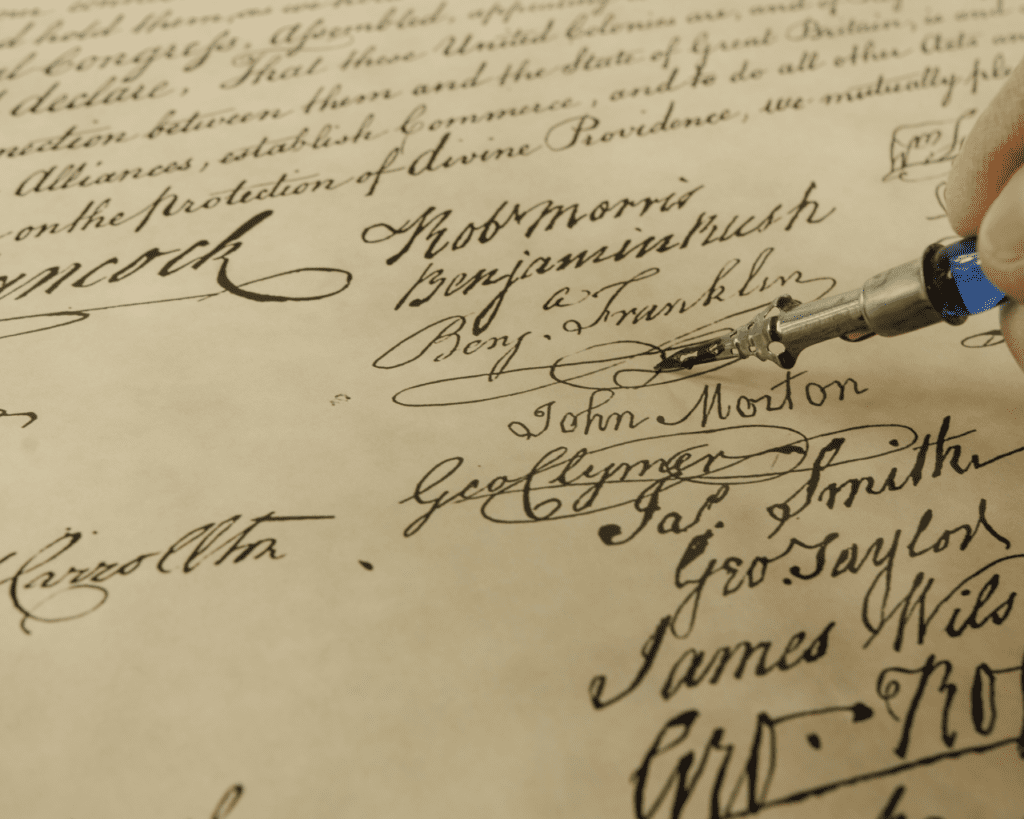 hold them, as we hold
Congress, Assembled, appealing
declare, That these United Colonies are, and of
nection between them and the State of Great Britain, is and
Alliances, establish Commerce, and to do all other Acts an
on the protection of divine Providence, we mutually ple
ancock
Rob Morris
Benjamin Rush
Benj. Franklin
John Morton
Geo Clymer
Jas. Smith
Geo. Taylor
Carrollton
James Wils
Geo. Ro